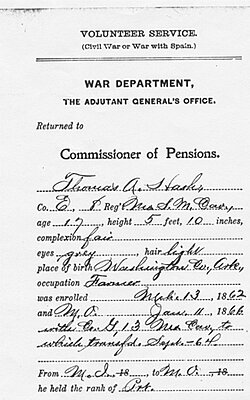 VOLUNTEER SERVICE.
(Civil War or War with Spain.)
WAR DEPARTMENT,
THE ADJUTANT GENERAL'S OFFICE.
Returned to
Commissioner of Pensions.
Thomas A.
Co. E, Reg't Mo S. M. Cav.,
age 17, height 5 feet, 10 inches,
complexion fair
eyes grey, hair light
place of birth Washington Co, Ark,
occupation Farmer
was enrolled Mch. 13, 1862
and M.O. Jan. 11, 1866
with Co. G, 13 Mo Cav, to
which transfd Sept. -64.
From M.I. 18 , to M.O. 18 .
he held the rank of Pvt.